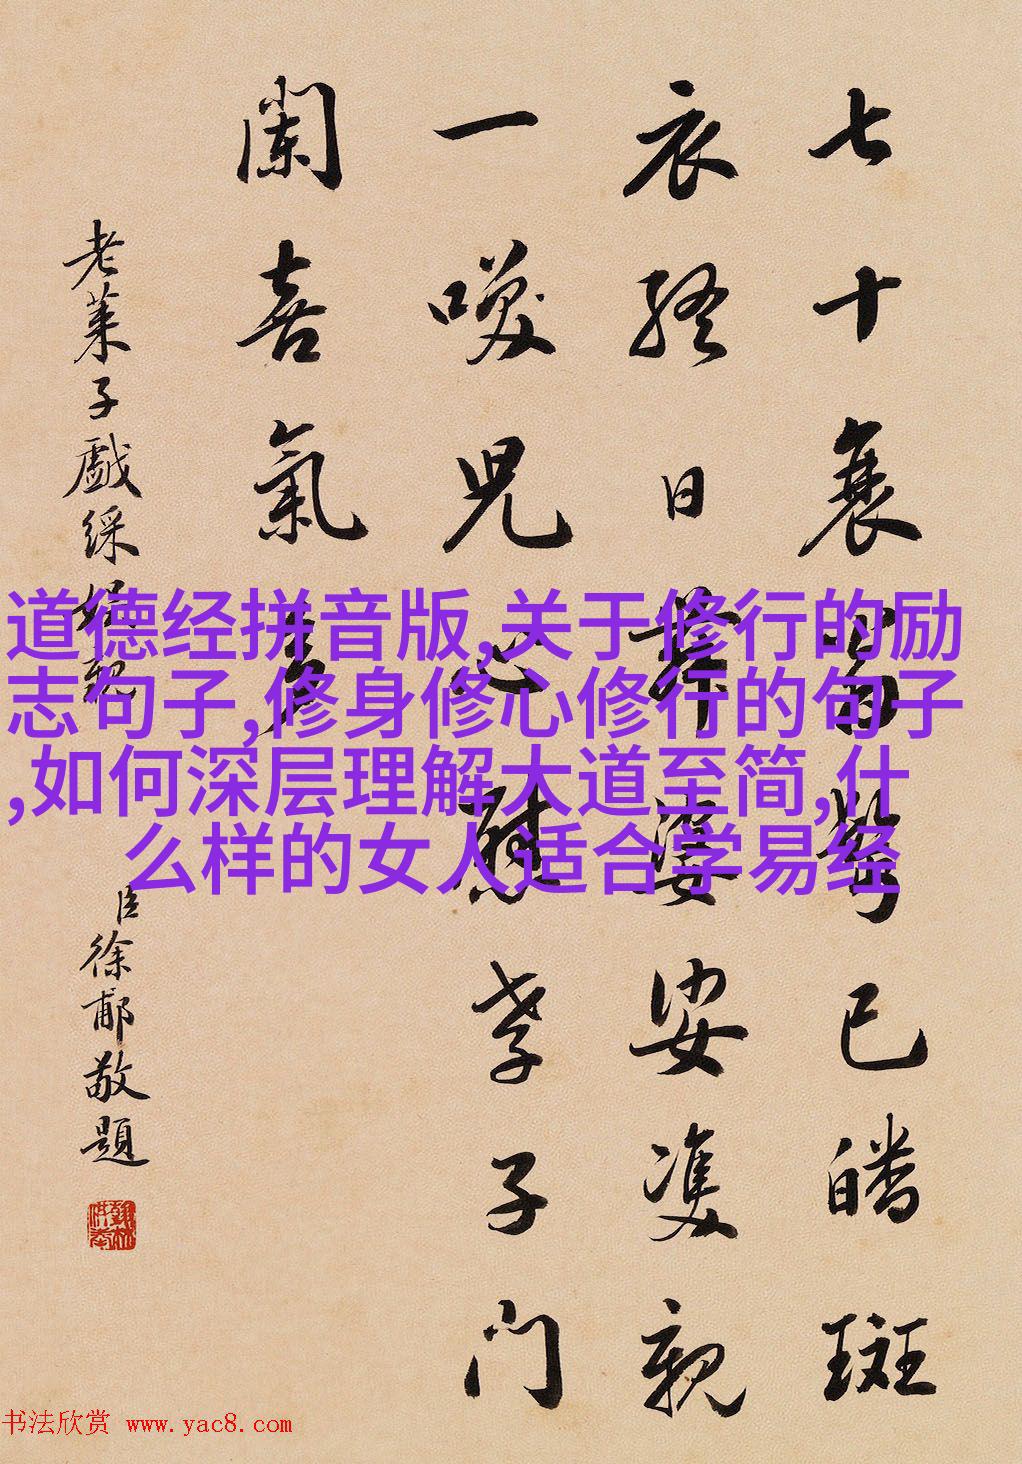 七十衰已皤斑
衣終日舞婆娑雙親
一喚兒心慰孝子門
闌喜氣多
老萊子戲綵娛親
臣徐郙敬題
道德经拼音版,关于修行的励
志句子,修身修心修行的句子
,如何深层理解大道至简,什
么样的女人适合学易经
书法欣赏 www.yac8.com